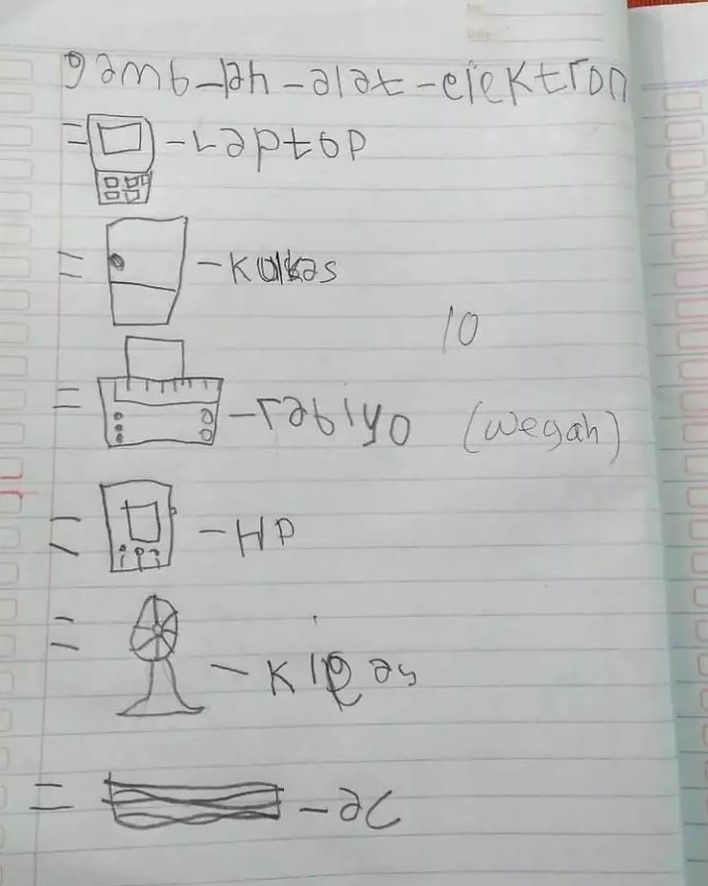 gamb-lah-alat-elektron
= -Laptop
= -kulkas
10
= -rabiyo (wegah)
= -HP
= -kipas
= -ac